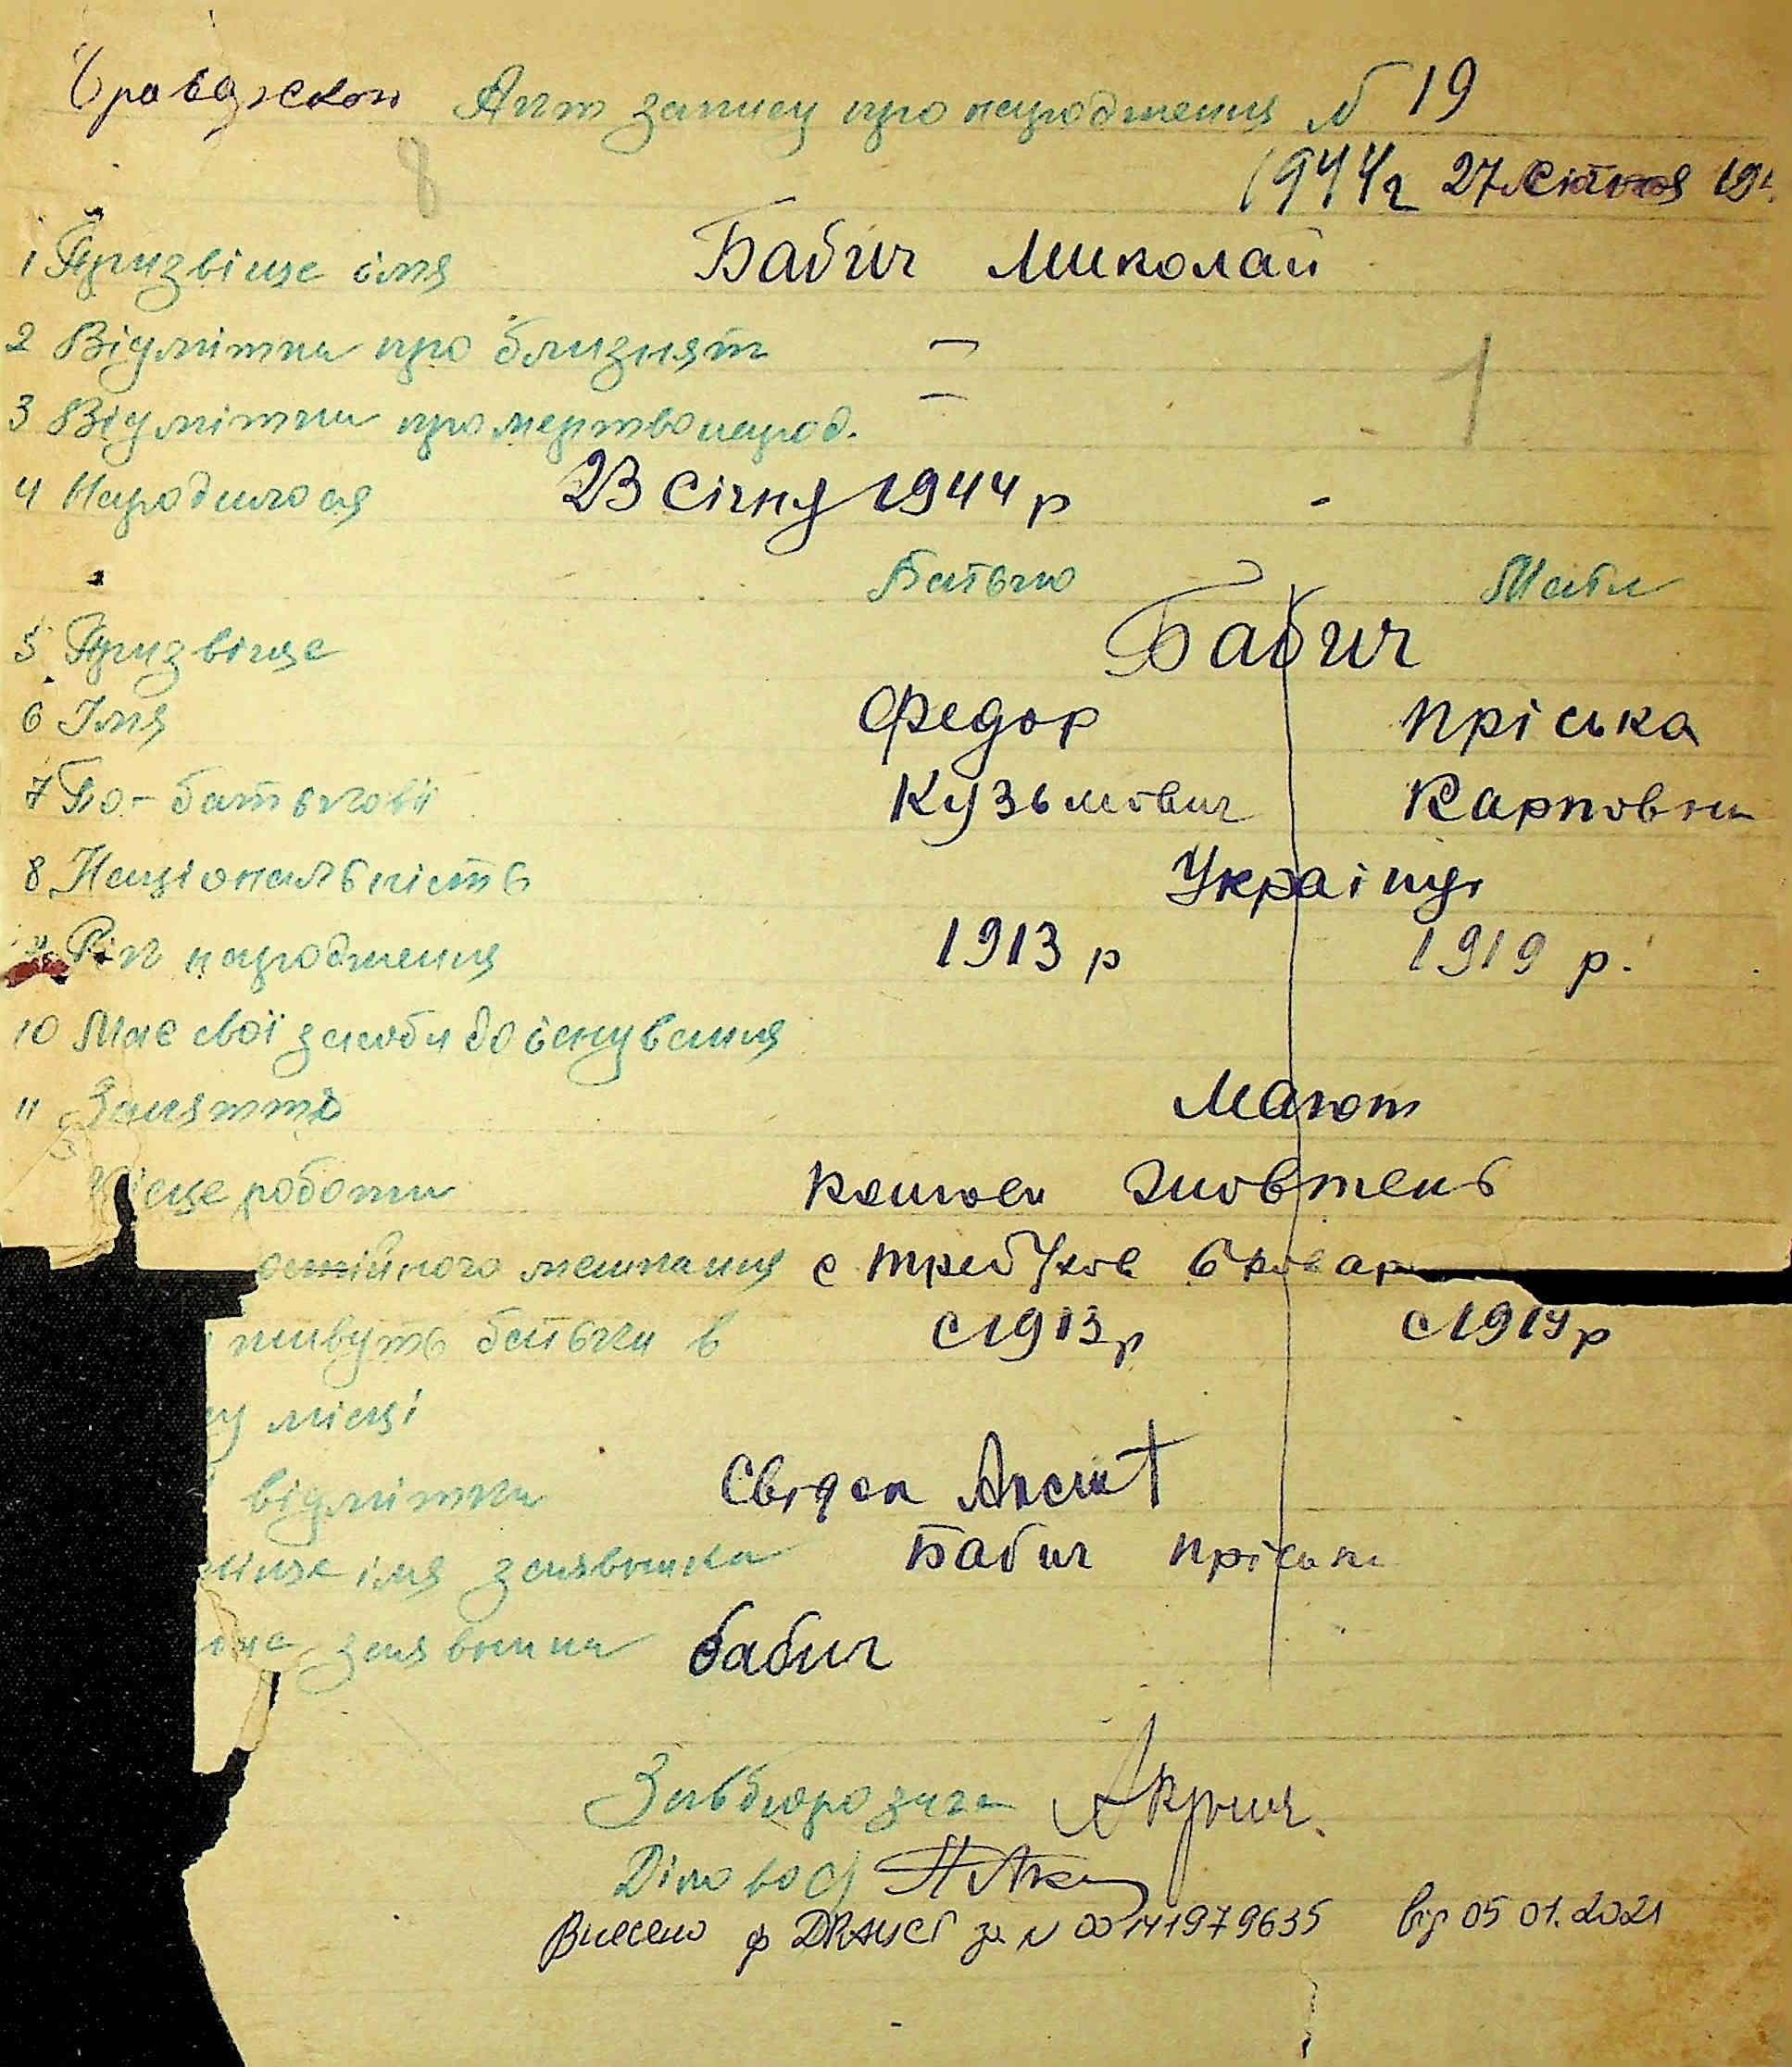 Акт запису про народження № 19
8
1944г 27 січня 194
1 Призвіще імя Бабич Миколай
2 Відмітка про близнят —
3 Відмітки про мертвонарод. — 1
4 Народилося 23 Січня 1944 р -
Батько Мати
5 Призвіще Бабич
6 Імя Федор Пріська
7 По-батькові Кузьмович Карповна
8 Національність Українці
Рік народження 1913 р 1919 р.
10 Має свої засоби до існування
11 Заняття Мают
місце роботи Жовтень
остійного мешкання с Требухов Бровар
живуть батьки в с 1913 р с 1919 р
му місці
відмітка Свідок
віще імя заявника Бабич Пріська
заявника бабич
Завбюро загса
Діловод
Внесено ф ДРАЦСГ за N 00141979635 від 05 01. 2021